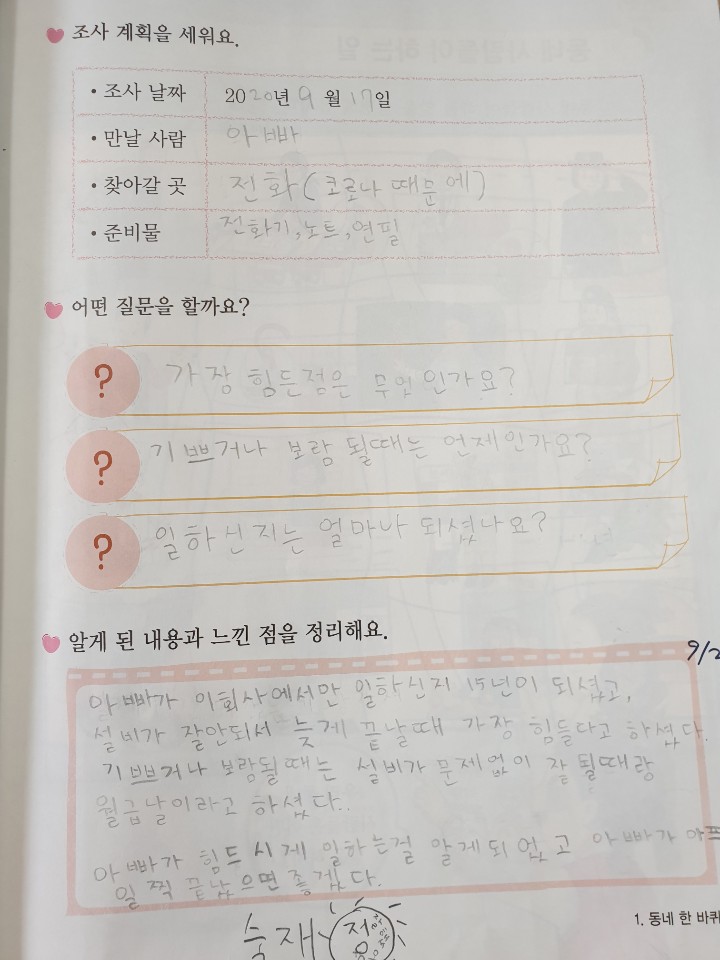 조사 계획을 세워요.
• 조사 날짜 2020년 9월 17일
• 만날 사람 아빠
• 찾아갈 곳 전화(코로나 때문에)
• 준비물 전화기, 노트, 연필
어떤 질문을 할까요?
? 가장 힘든점은 무엇인가요?
? 기쁘거나 보람될때는 언제인가요?
? 일하신지는 얼마나 되셨나요?
알게 된 내용과 느낀 점을 정리해요.
9/2
아빠가 이회사에서만 일하신지 15년이 되셨고,
설비가 잘안되서 늦게 끝날때 가장 힘들다고 하셨다.
기쁘거나 보람될때는 설비가 문제없이 잘 될때랑
월급날이라고 하셨다..
아빠가 힘드시게 일하는걸 알게되었고 아빠가 아프
일찍 끝났으면 좋겠다.
숙제
1. 동네 한 바퀴